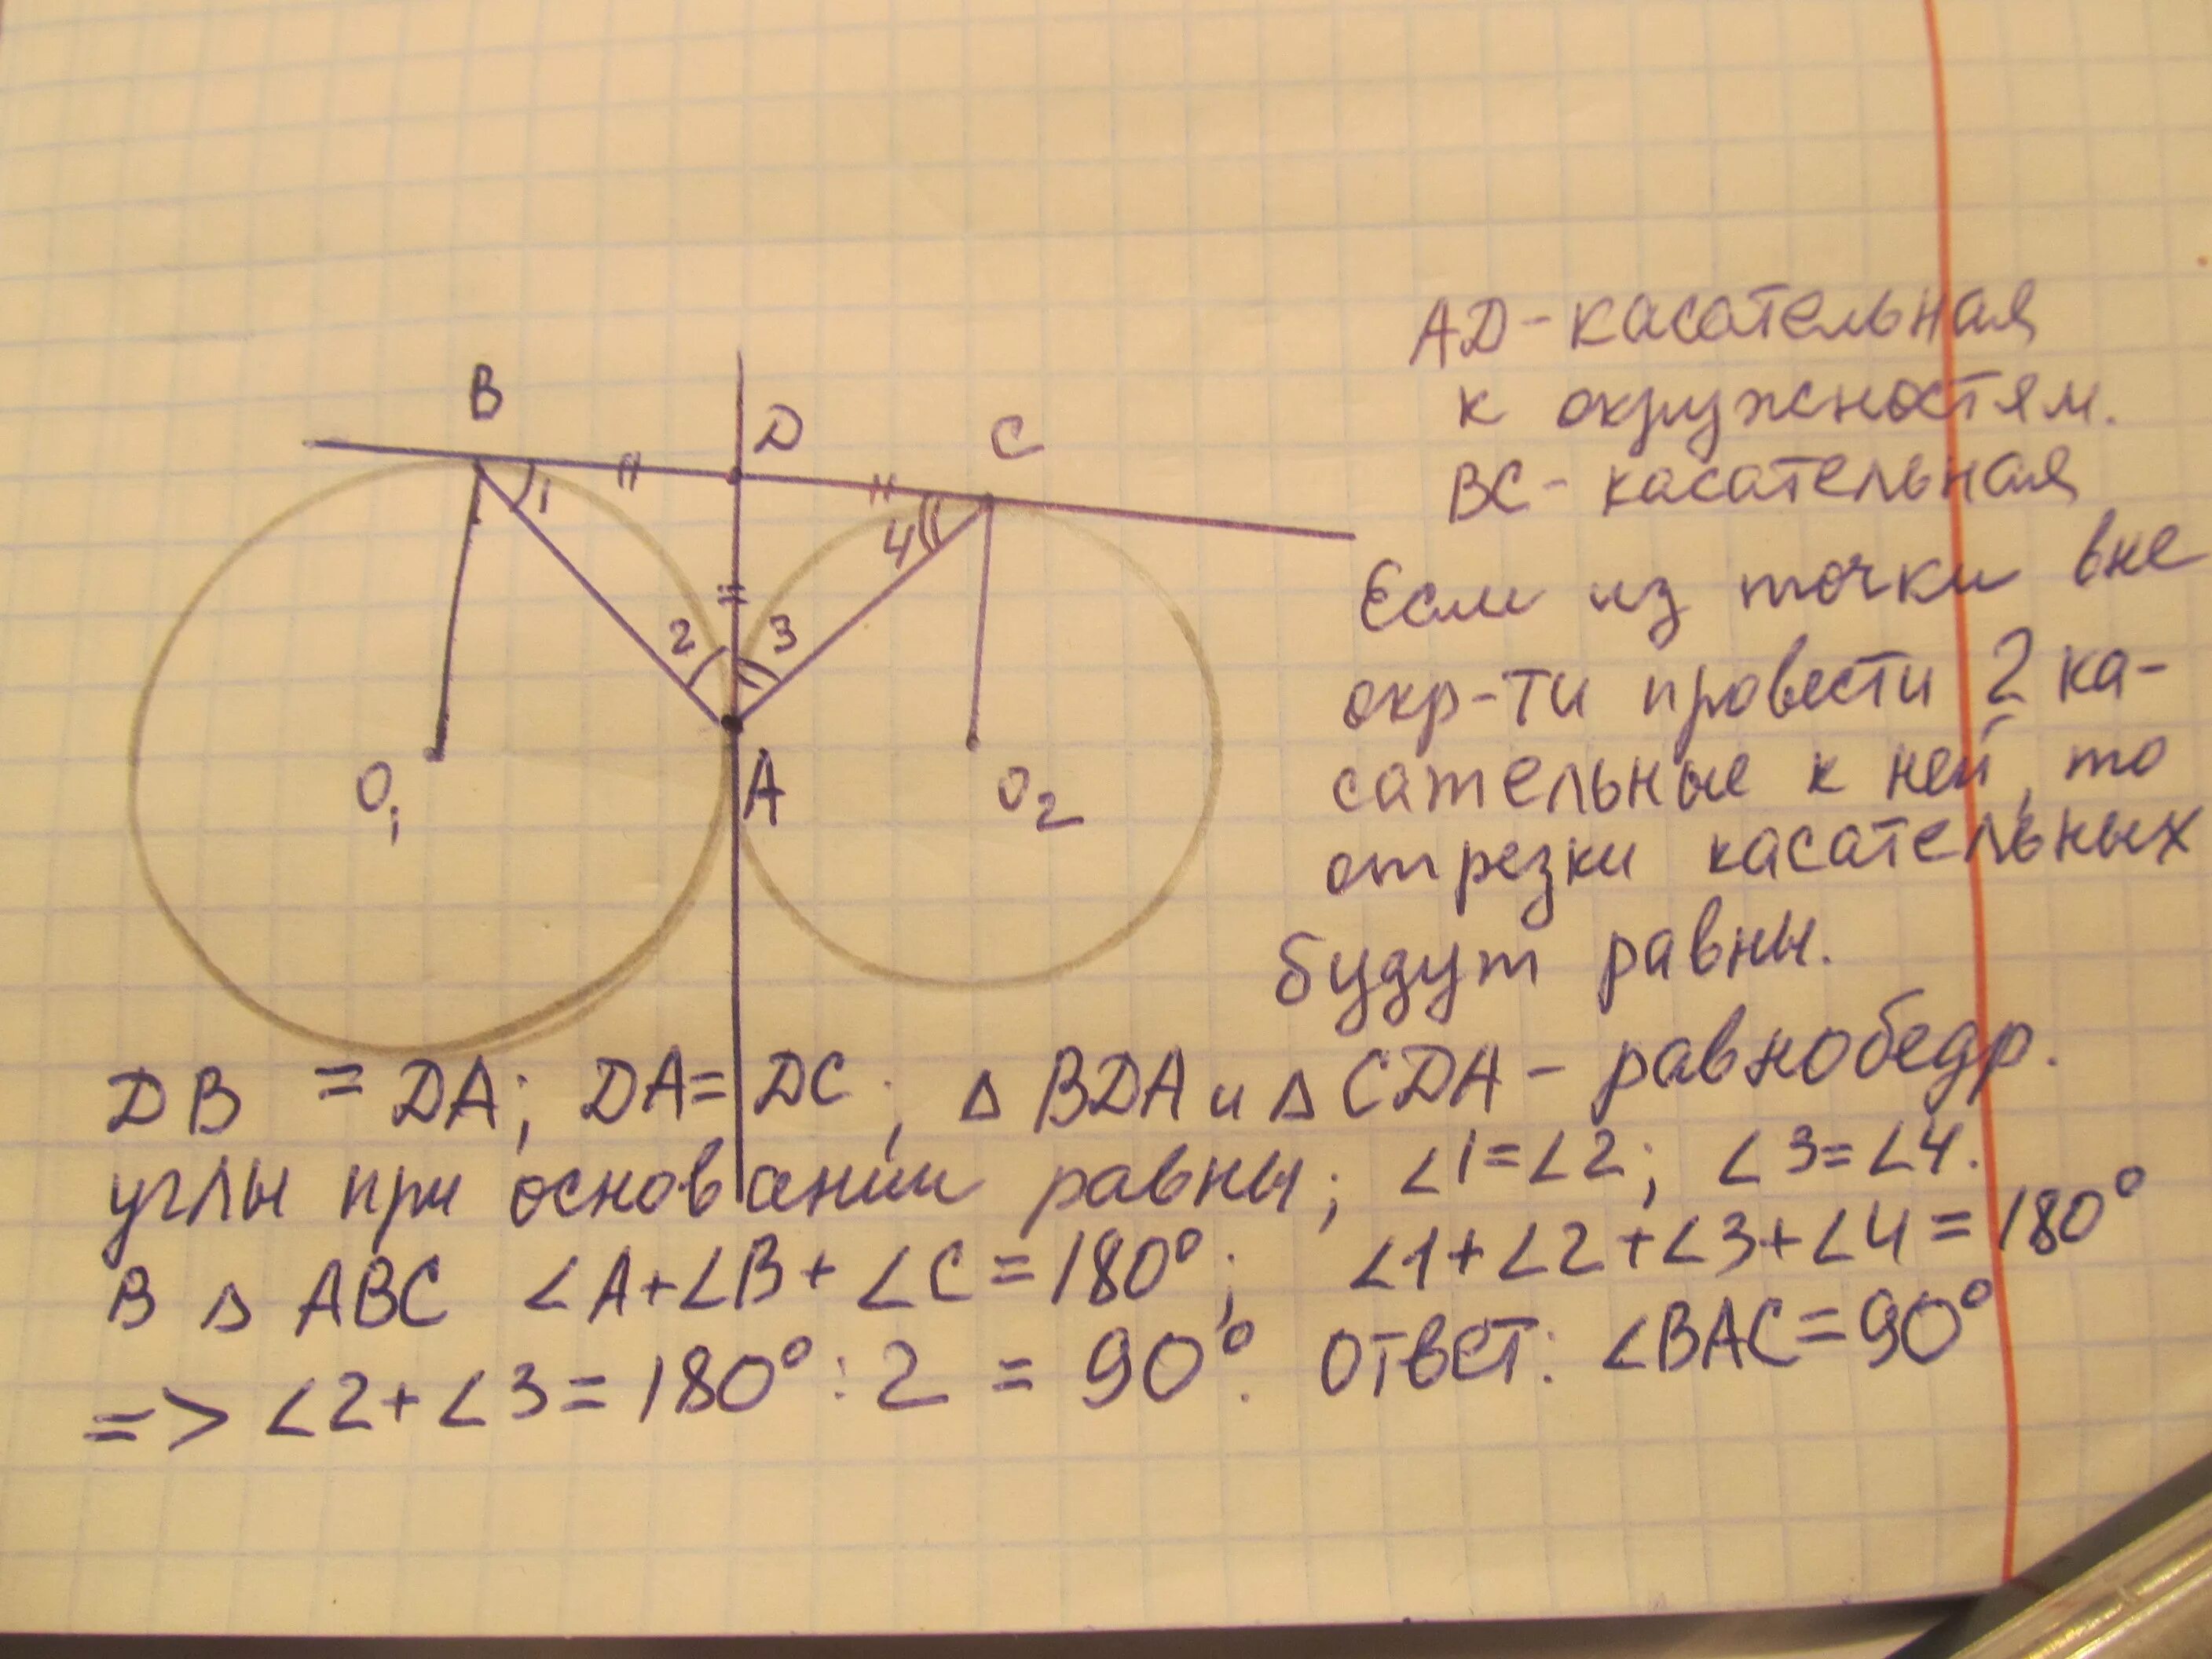 B
D
C
1
4
2
3
O1
A
O2
AD - касательная
к окружностям.
BC - касательная
Если из точки вне
окр-ти провести 2 ка-
сательные к ней, то
отрезки касательных
будут равны.
DB = DA; DA = DC; △ BDA и △ CDA - равнобедр.
углы при основании равны; ∠1=∠2; ∠3=∠4.
В △ ABC ∠A+∠B+∠C=180°; ∠1+∠2+∠3+∠4=180°
=> ∠2+∠3=180°:2=90°. Ответ: ∠BAC=90°